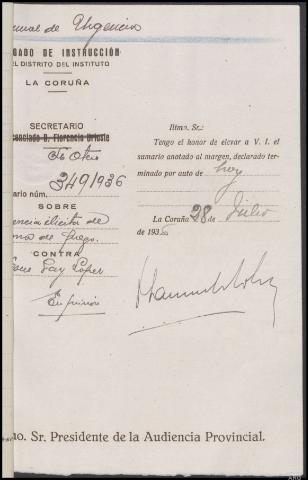 unal de Urgencia
GADO DE INSTRUCCIÓN
EL DISTRITO DEL INSTITUTO
LA CORUÑA
SECRETARIO
cenciado D. Florencio Urioste
Otero
349/1936
ario núm.
SOBRE
encia ilícita de
ma de fuego.
CONTRA
López
En prisión
Iltmo. Sr.:
Tengo el honor de elevar a V. I. el
sumario anotado al margen, declarado ter-
minado por auto de hoy
La Coruña 28 de Julio
de 1936
no. Sr. Presidente de la Audiencia Provincial.